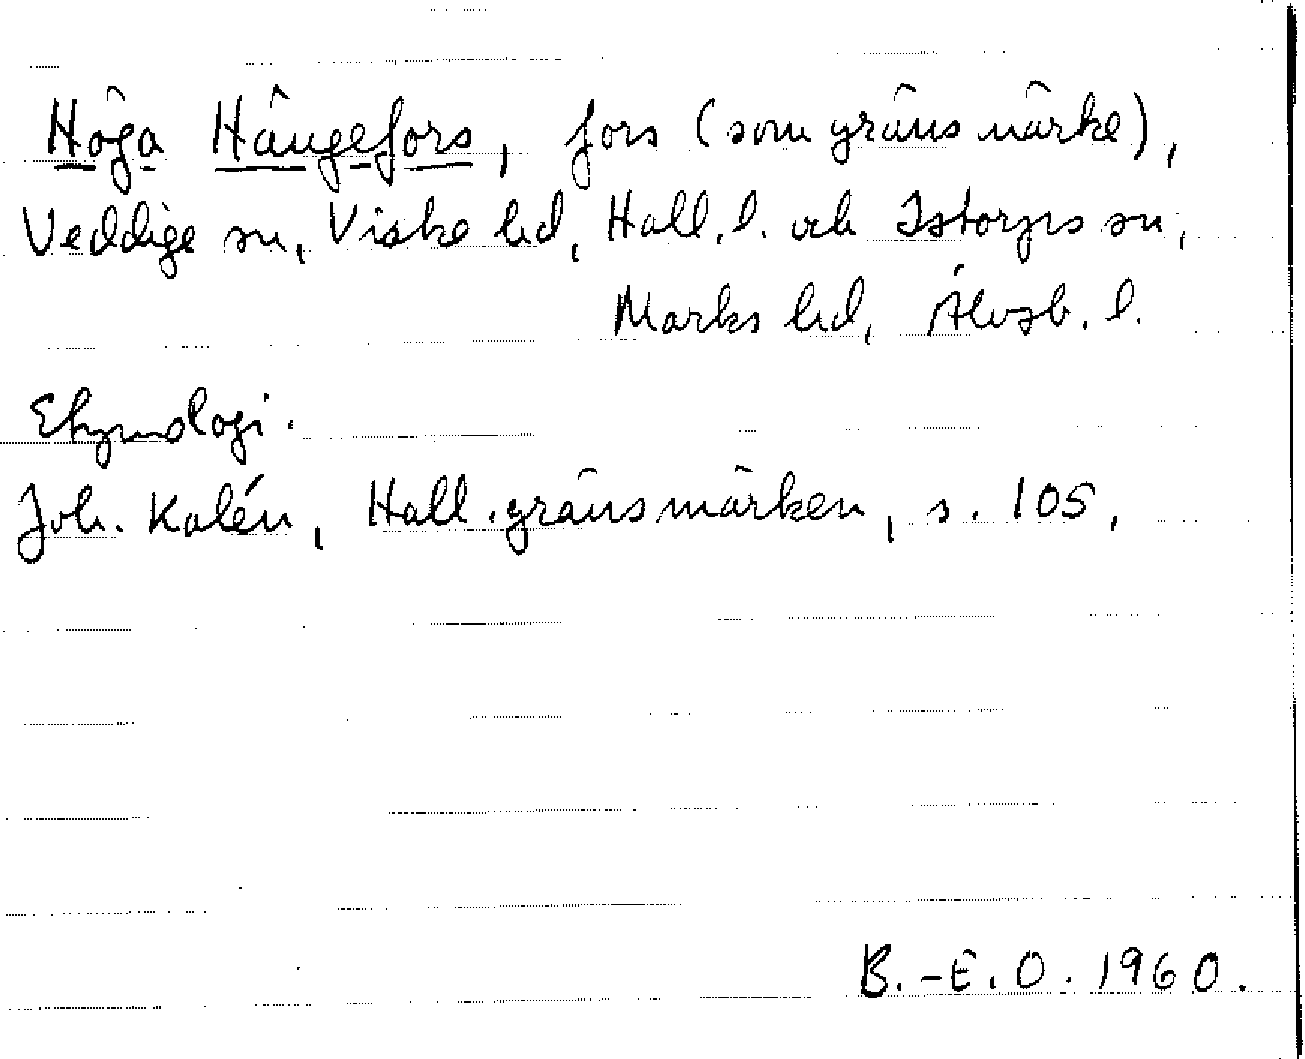 Höga Hängefors, fors (som gränsmärke),
Veddige sn, Viske hd, Hall. l. och Istorps sn,
Marks hd, Älvsb. l.
Etymologi.
Joh. Kalén, Hall. gränsmärken, s. 105,
B.-E. O. 1960.